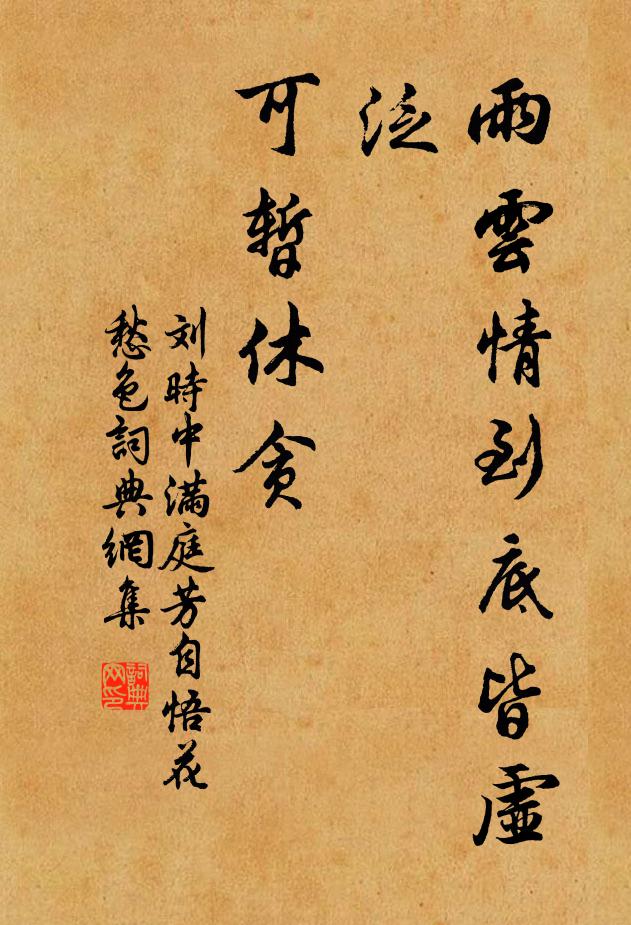 雨雲情到底皆虛
泛
可暫休貪
刘時中滿庭芳自悟花
愁色詞典網集
詞典
网印